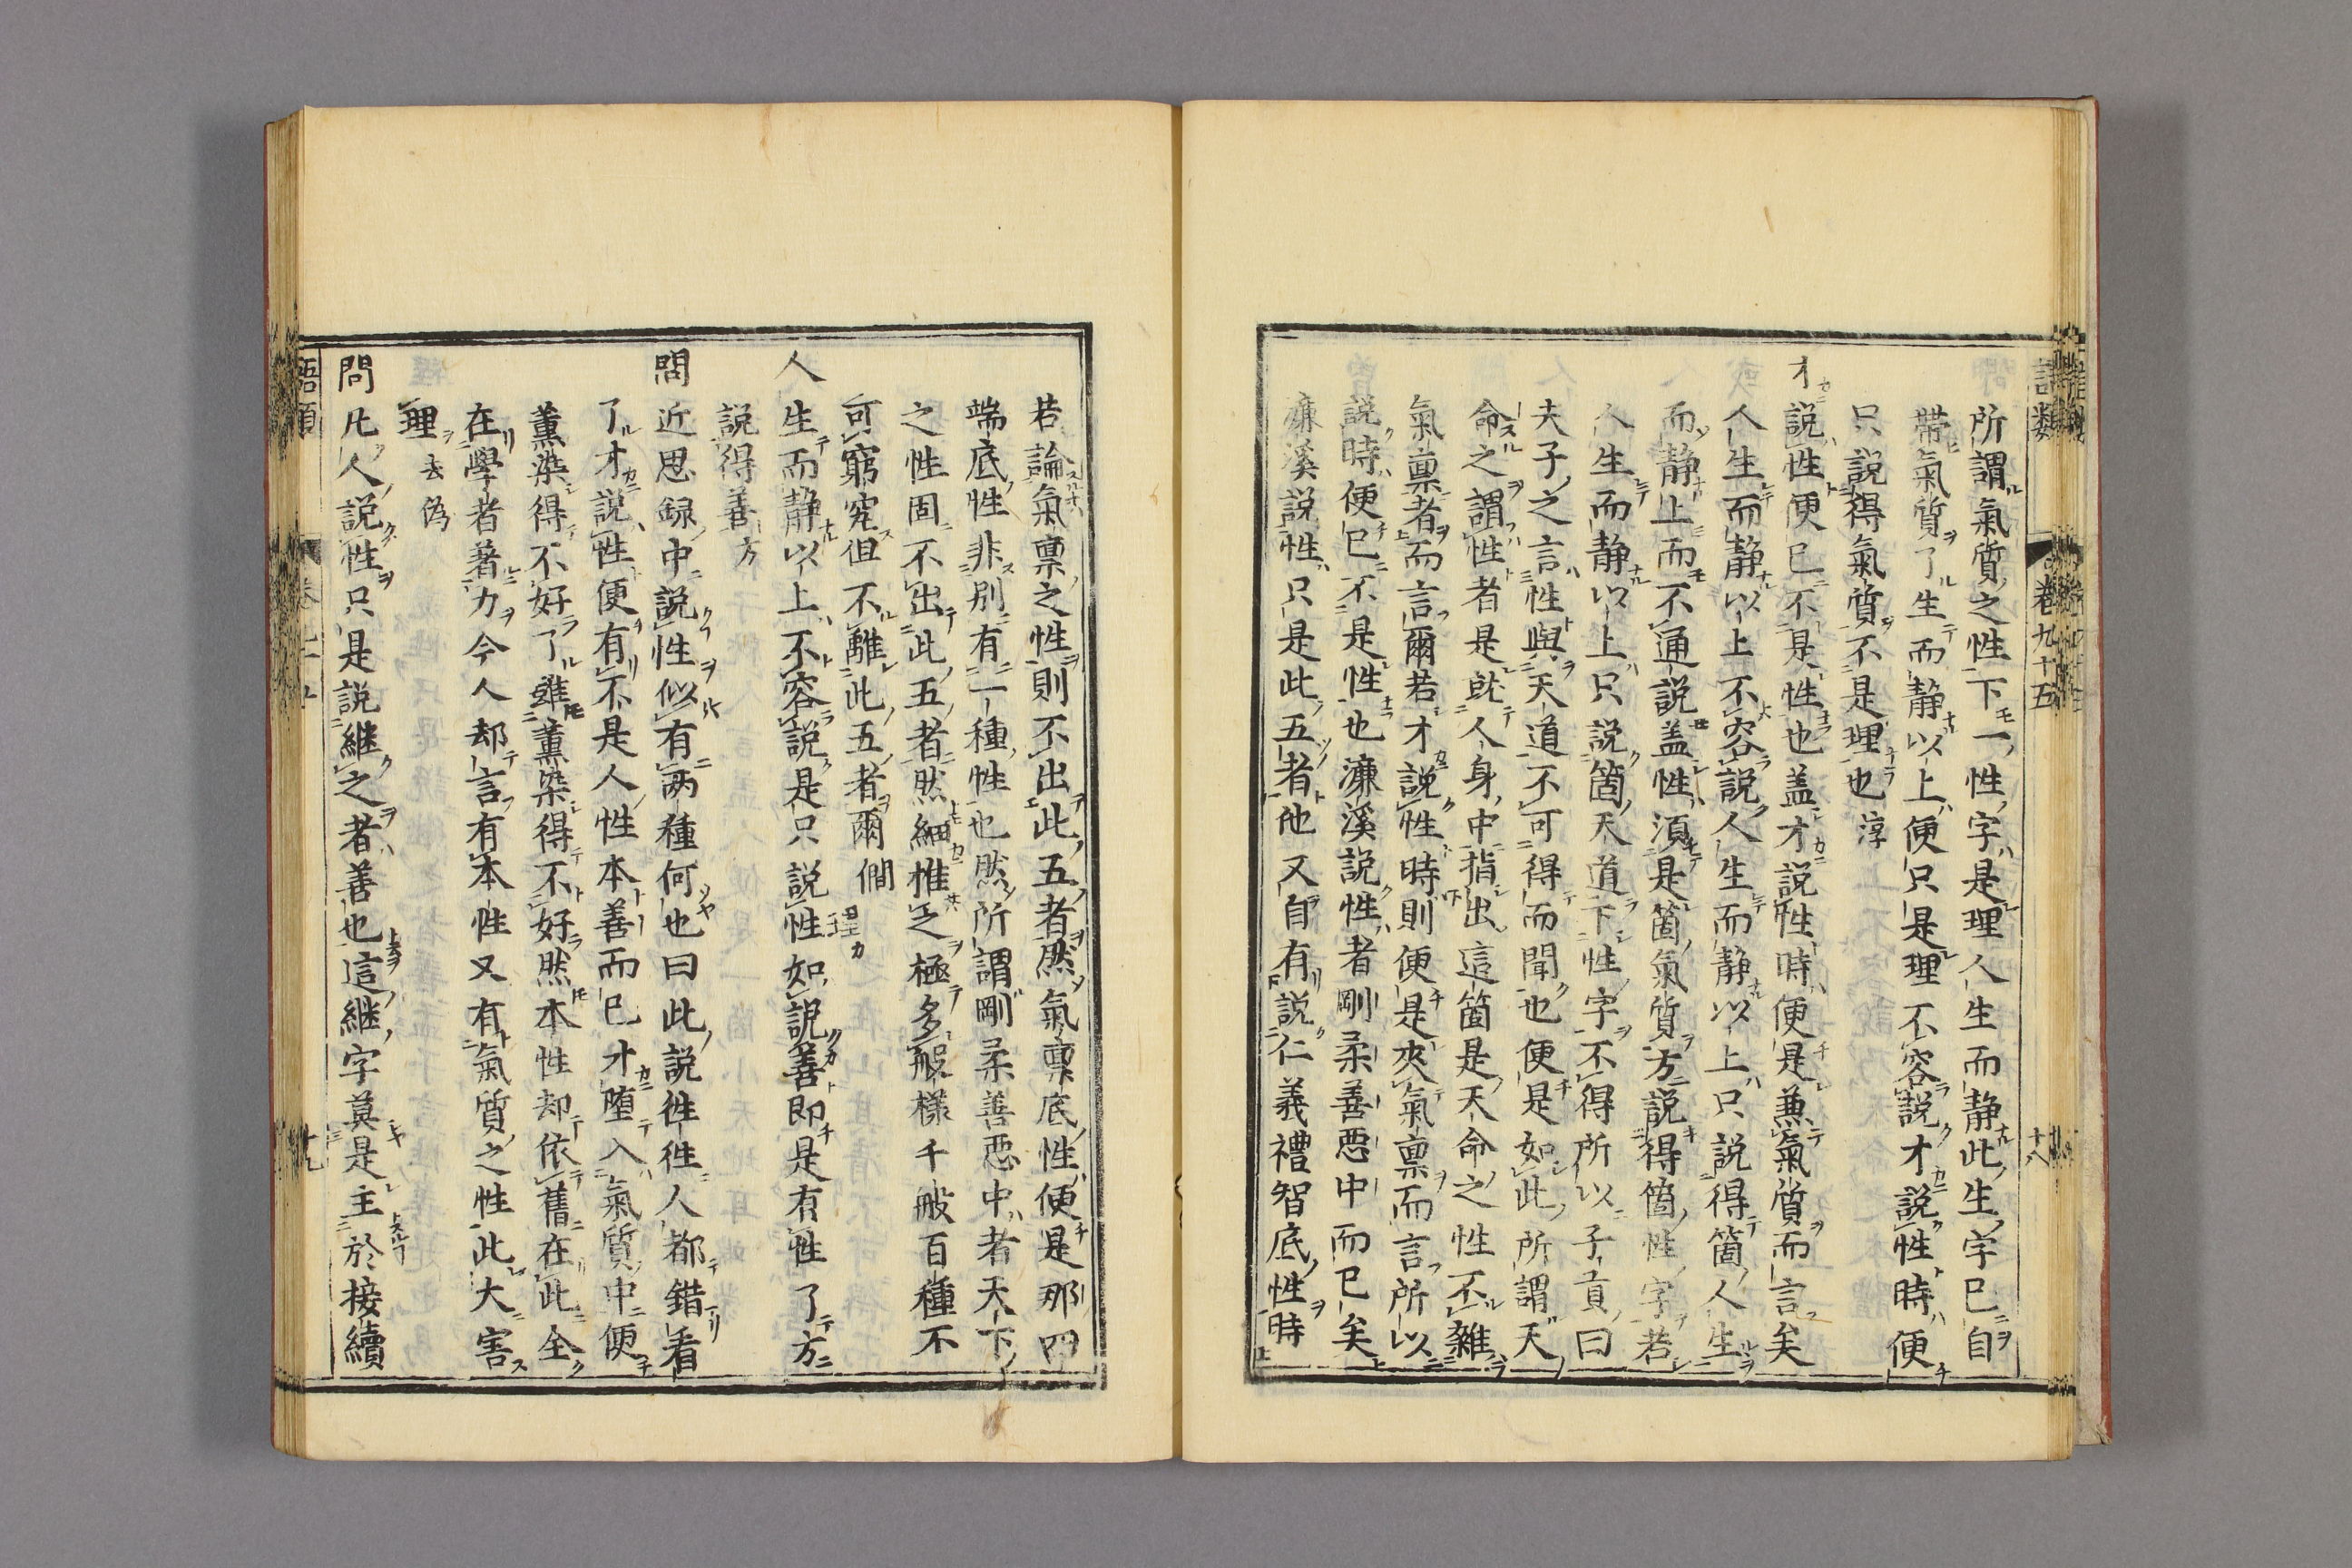 語類 卷九十五 十八
所謂氣質之性下一性字是理人生而静此生字已自
帶氣質了生而静以上便只是理不容說才說性時便
只說得氣質不是理也 淳
才說性便已不是性也盖才說性時便是兼氣質而言矣
人生而静以上不容說人生而静以上只說得箇人生
而静上而不通說盖性須是箇氣質方說得箇性字若
人生而静以上只說箇天道下性字不得所以子貢曰
夫子之言性與天道不可得而聞也便是如此所謂天
命之謂性者是就人身中指出這箇是天命之性不雜
氣禀者而言爾若才說性時則便是夾氣禀而言所以
說時便已不是性也濂溪說性者剛柔善悪中而已矣
濂溪說性只是此五者他又自有說仁義禮智底性時
若論氣禀之性則不出此五者然氣禀底性便是那四
端底性非別有一種性也然所謂剛柔善悪中者天下
之性固不出此五者然細推之極多般樣千般百種不
可窮究但不離此五者爾 僩
人生而静以上不容說是只說性如說善即是有性了方
說得善 方
問近思録中說性似有兩種何也曰此說徃徃人都錯看
了才說性便有不是人性本善而已才墮入氣質中便
薫染得不好了雖薫染得不好然本性却依舊在此全
在學者著力今人却言有本性又有氣質之性此大害
理 去偽
問凡人說性只是說継之者善也這継字莫是主於接續